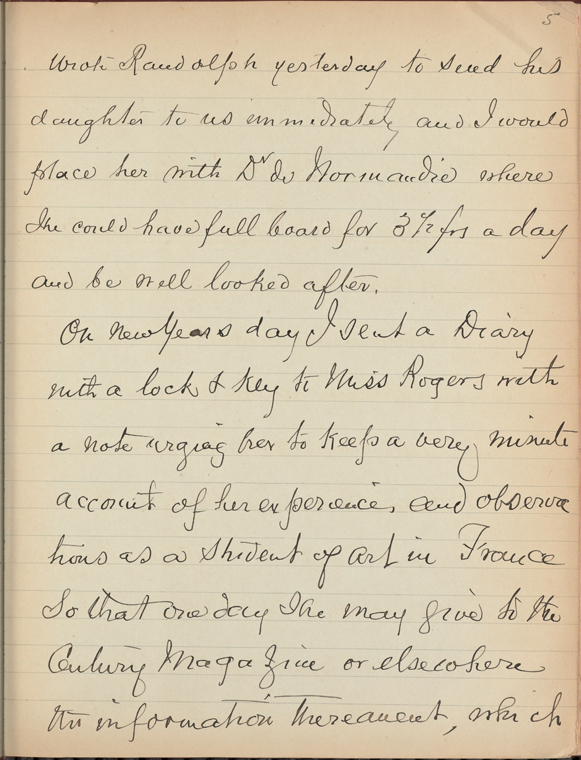 5
Wrote Randolph yesterday to send his
daughter to us immediately and I would
place her with Dr de Normandie where
she could have full board for 3½ frs a day
and be well looked after.
On New Years day I sent a Diary
with a lock & key to Miss Rogers with
a note urging her to keep a very minute
account of her experiences and observa
tions as a student of art in France
So that one day she may give to the
Century Magazine or elsewhere
the information thereanent, which